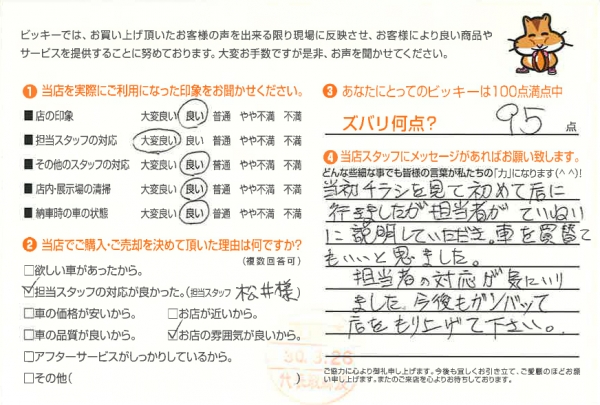 ビッキーでは、お買い上げ頂いたお客様の声を出来る限り現場に反映させ、お客様により良い商品や
サービスを提供することに努めております。大変お手数ですが是非、お声を聞かせてください。
❶ 当店を実際にご利用になった印象をお聞かせください。
■店の印象 大変良い 良い 普通 やや不満 不満
■担当スタッフの対応 大変良い 良い 普通 やや不満 不満
■その他のスタッフの対応 大変良い 良い 普通 やや不満 不満
■店内・展示場の清掃 大変良い 良い 普通 やや不満 不満
■納車時の車の状態 大変良い 良い 普通 やや不満 不満
❷ 当店でご購入・ご売却を決めて頂いた理由は何ですか?
(複数回答可)
□欲しい車があったから。
☑担当スタッフの対応が良かった。(担当スタッフ 松井様)
□車の価格が安いから。 □お店が近いから。
□車の品質が良いから。 ☑お店の雰囲気が良いから。
□アフターサービスがしっかりしているから。
□その他( )
30.3.26
❸ あなたにとってのビッキーは100点満点中
ズバリ何点? 95 点
❹ 当店スタッフにメッセージがあればお願い致します。
どんな些細な事でも皆様の言葉が私たちの「力」になります(^^)!
当初チラシを見て初めて店に
行きましたが担当者がていねい
に説明していただき。車を買替て
もいいと思ました。
担当者の対応が気にいり
ました。今後もガンバッて
店をもり上げて下さい。
ご協力に心より御礼申し上げます。今後も宜しくお引き立て、ご愛顧のほどお願
い申し上げます。またのご来店を心よりお待ちしております。